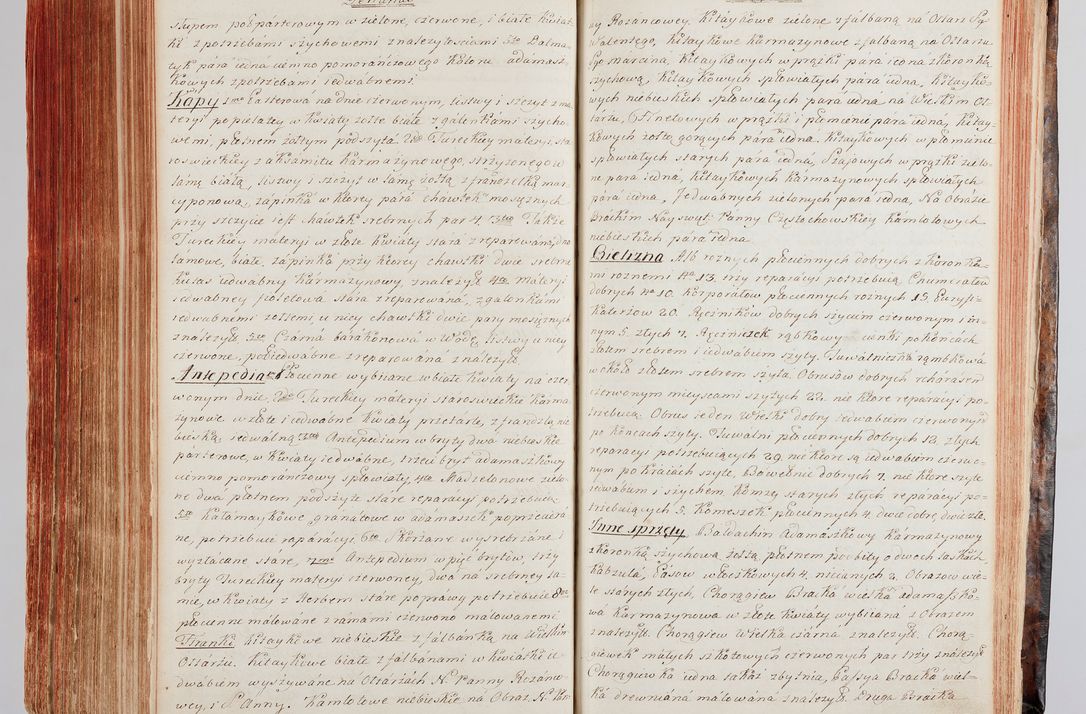 słupem pół parterowym w zielone, czerwone, i białe kwiat-
ki z potrzebami szychowemi z należytościami 5te Dalma-
tyk pára iedna ciemno pomoránczowego koloru adamasz-
kowych z potrzebámi iedwábnemi
Kápy 1ma Lasterowá ná dnie czerwonym, listwy i szczyt z ma-
teryi popielátey w kwiáty żołte białe z galonkámi szycho-
wemi, płotnem żołtym podszyta 2da Tureckiey materyi sta-
roswieckiey z aksamitu karmazynowego, strzyżonego w
łámę białą, listwy i szczyt w łámę żołtą z frandzelką mar-
cyponową, zápinká w ktorey párá chawtek mosiężnych
przy szczycie iest chawtek srebrnych par 4. 3tia Także
Tureckiey máteryi w złote kwiáty stara zreparowáná, dno
łamowe, białe, zápinká przy ktorey chawtki dwie srebrne
kutas iedwabny kármázynowy, z należyt: 4ta Máteryi
iedwabney fioletowá stárá zreparewáná, z galonkámi
iedwabnemi żołtemi, u niey chawtki dwie páry mosiężnych
z należyt: 5ta Czárná bárákonowá w Wodę, listwy u niey
czerwone, pół iedwabne zreparowáná z należyt:
Antepedia 1 Płocienne wybiiane w białe kwiáty na czer-
wonym dnie, 2do Tureckiey máteryi staroswieckie kárma-
zynowe w złote i iedwábne kwiáty przetárte, z frandzlą nie-
bieską iedwálną 3tio Antepedium w bryty dwá niebieskie
párterowe, w kwiáty iedwábne, trzeci bryt adamaszkowy
ciemno pomoránczowy społowiáły, 4to Mádzelonowe zielo-
ne dwa płotnem podszyte stáre reparácyi potrzebuie
5to Kátámáykowe, gránátowe w adámászek poprzeciera-
ne, potrzebuie reparácyi 6to Skorzane wysrebrzáne i
wyzłácáne stáre, 7mo Antepedium w pięć brytow, trzy
bryty Tureckiey materyi czerwoney, dwá ná srebrney łá-
mie, w kwiáty z Herbem stáre poprawy potrzebuie 8vo
płocienne málowáne z rámámi czerwono málowánemi
Firanki kitaykowe niebieskie z falbánką ná Wielkim
Ołtarzu. Kitaykowe białe z falbánámi w kwiatki ie-
dwabiem wyszywáne ná Ołtárzách N. Panny Rożanco-
wey, i S. Anny. Kámlotowe niebieskie ná Obraz N. Pan-
ny Rożancowey. Kitaykowe zielone z falbaną ná Ołtarz Sgo
Walentego, Kitaykowe kármázynowe z falbaną ná Ołtarzu
Sgo Marciná, Kitaykowych w prążki pára iedna z koronką
szychową, Kitaykowych społowiáłych pára iedná, Kitayko-
wych niebieskich społowiáłych pára iedná ná Wielkim Oł-
tarzu, Ottinelowych w prążki i płomienie pára iedná, Kitay-
kowych żołto gorących párá iedna. Kitaykowych w płomienie
społowiałych starych párá iedná, Szajowych w prążki zielo-
ne párá iedná, Kitaykowych kármázynowych społowiáłych
párá iedna, Jedwabnych zielonych párá iedná, Ná Obrazie
Brackim Nayświęt. Panny Częstochowskiey kámlotowych
niebieskich párá iedna
Bielizna Alb rożnych płociennych dobrych z koronka-
mi rożnemi No 13. trzy reparácyi potrzebuią. Humeratow
dobrych No 10. Korporałow płociennych rożnych 15. Puryfi-
katerzow 20. Ręcznikow dobrych szyciem czerwonym i in-
nym 5. złych 7. Ręczniczek rąbkowy cienki po końcách
złotem srebrem i iedwabiem szyty. Tuwalniczká rąmbkowá
w około złotem srebrem szyta. Obrusow dobrych
czerwonym mieyscámi szytych 22. niektore reparácyi po-
trzebuią. Obrus ieden Wielki dobry iedwabiem czerwonym
po końcách szyty. Tuwalni płociennych dobrych 12. złych
reparacyi potrzebuiących 29. niektore są iedwabiem czerwo-
nym po kraiách szyte. Báwełnic dobrych 7. niektore szyte
iedwabiem i szychem. Komży stárych złych reparácyi po-
trzebuiących 5. Komeżek płociennych 4. dwie dobre, dwie złe.
Inne sprzęty. Baldachin Adamaszkowy Kármázynowy
z koronką szychową żołtą, płotnem podbity o dwoch laskách,
kábzulá, Pásow włoczkowych 4. nicianych 2. Obrazow wie-
le stárych złych. Chorągiew Bracka wielká adamaszko-
wá karmazynowa w złote kwiáty wybiiáná z Obrazem
z należyt: Chorągiew Wielka czárna z należyt: Chorą-
giewek máłych szkotowych czerwonych par trzy z należyt:
Chorągiewka iedna takaż zbytnia, Passya Bracka wiel-
ka drewniáná málowáná z należyt: Druga Bracka